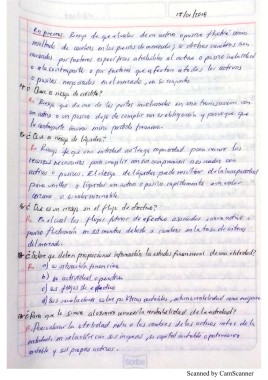 17/01/2018
En precios: Riesgo de que el valor de un activo o pasivo fluctúe como
resultado de cambios en los precios de mercado, si dichos cambios son
causados por factores específicos atribuibles al activo o pasivo individual
o a la contraparte o por factores que afectan a todos los activos
o pasivos negociados en el mercado, en su conjunto
¿Qué es riesgo de crédito?
R= Riesgo que de una de las partes involucradas en una transacción con
un activo o un pasivo deje de cumplir con su obligación y provoque que
la contraparte incurra en una pérdida financiera.
¿Qué es riesgo de liquidez?
R= Riesgo de que una entidad no tenga capacidad para reunir los
recursos necesarios para cumplir con sus compromisos asociados con
activos o pasivos. El riesgo de liquidez puede resultar de la incapacidad
para vender y liquidar un activo o pasivo rápidamente a un valor
cercano a su valor razonable
¿Qué es un riesgo en el flujo de efectivo?
R= En el cual los flujos futuros de efectivo asociados con un activo o
pasivo fluctuarán en sus montos debido a cambios en la tasa de interés
del mercado.
¿Sobre qué deben proporcionar información los estados financieros de una entidad?
R= a) su situación financiera
b) su actividad operativa
c) sus flujos de efectivo
d) sus revelaciones sobre políticas contables,
¿Para qué le sirve al usuario conocer la rentabilidad de la entidad?
R= Para valorar la utilidad neta o los cambios de los activos netos de la
entidad, en relación con sus ingresos, su capital contable o patrimonio
contable y sus propios activos.
Scribe
Scanned by CamScanner